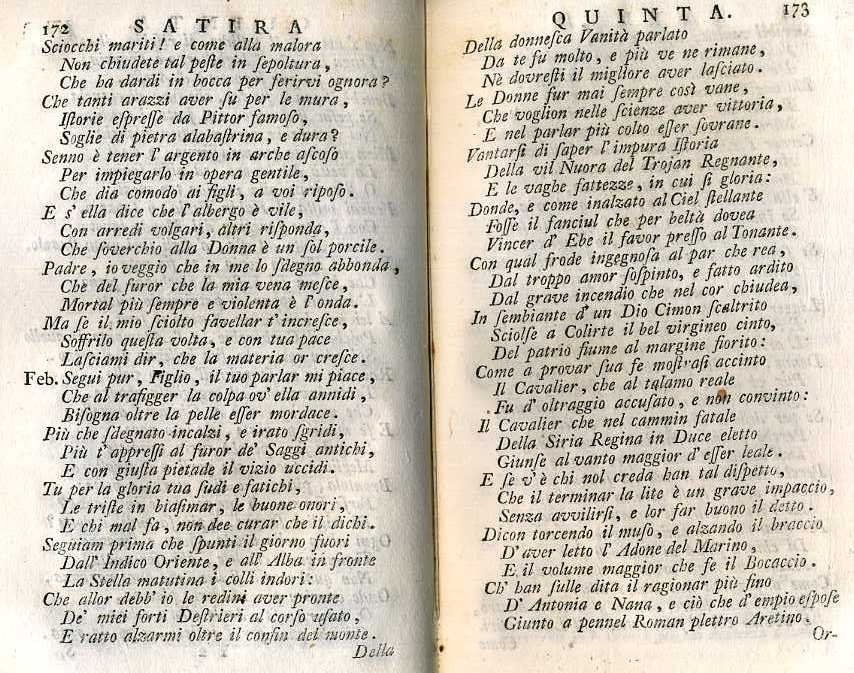 172 SATIRA
Sciocchi mariti! e come alla malora
Non chiudete tal peſte in ſepoltura,
Che ha dardi in bocca per ferirvi ognora?
Che tanti arazzi aver ſu per le mura,
Iſtorie eſpreſſe da Pittor famoſo,
Soglie di pietra alabaſtrina, e dura?
Senno è tener l' argento in arche aſcoſo
Per impiegarlo in opera gentile,
Che dia comodo ai figli, a voi ripoſo.
E s' ella dice che l' albergo è vile,
Con arredi volgari, altri riſponda,
Che ſoverchio alla Donna è un ſol porcile.
Padre, io veggio che in me lo ſdegno abbonda,
Chè del furor che la mia vena meſce,
Mortal più ſempre e violenta è l' onda.
Ma ſe il mio ſciolto favellar t' increſce,
Soffrilo queſta volta, e con tua pace
Laſciami dir, che la materia or creſce.
Feb. Segui pur, Figlio, il tuo parlar mi piace,
Che al trafigger la colpa ov' ella annidi,
Biſogna oltre la pelle eſſer mordace.
Più che ſdegnato incalzi, e irato ſgridi,
Più t' appreſſi al furor de' Saggi antichi,
E con giuſta pietade il vizio uccidi.
Tu per la gloria tua ſudi e fatichi,
Le triſte in biaſimar, le buone onori,
E chi mal fa, non dee curar che il dichi.
Seguiam prima che ſpunti il giorno fuori
Dall' Indico Oriente, e all' Alba in fronte
La Stella matutina i colli indori:
Che allor debb' io le redini aver pronte
De' miei forti Deſtrieri al corſo uſato,
E ratto alzarmi oltre il confin del monte.
Della
QUINTA. 173
Della donneſca Vanità parlato
Da te fu molto, e più ve ne rimane,
Nè dovreſti il migliore aver laſciato.
Le Donne fur mai ſempre così vane,
Che voglion nelle ſcienze aver vittoria,
E nel parlar più colto eſſer ſovrane.
Vantarſi di ſaper l' impura Iſtoria
Della vil Nuora del Trojan Regnante,
E le vaghe fattezze, in cui ſi gloria:
Donde, e come inalzato al Ciel ſtellante
Foſſe il fanciul che per beltà dovea
Vincer d' Ebe il favor preſſo al Tonante.
Con qual frode ingegnoſa al par che rea,
Dal troppo amor ſoſpinto, e fatto ardito
Dal grave incendio che nel cor chiudea,
In ſembiante d' un Dio Cimon ſcaltrito
Sciolſe a Colirte il bel virgineo cinto,
Del patrio fiume al margine fiorito:
Come a provar ſua fe moſtraſi accinto
Il Cavalier, che al talamo reale
Fu d' oltraggio accuſato, e non convinto:
Il Cavalier che nel cammin fatale
Della Siria Regina in Duce eletto
Giunſe al vanto maggior d' eſſer leale.
E ſe v' è chi nol creda han tal diſpetto,
Che il terminar la lite è un grave impaccio,
Senza avvilirſi, e lor far buono il detto.
Dicon torcendo il muſo, e alzando il braccio
D' aver letto l' Adone del Marino,
E il volume maggior che fe il Bocaccio.
Ch' han ſulle dita il ragionar più fino
D' Antonia e Nana, e ciò che d' empio eſpoſe
Giunto a pennel Roman plettro Aretino.
Or-